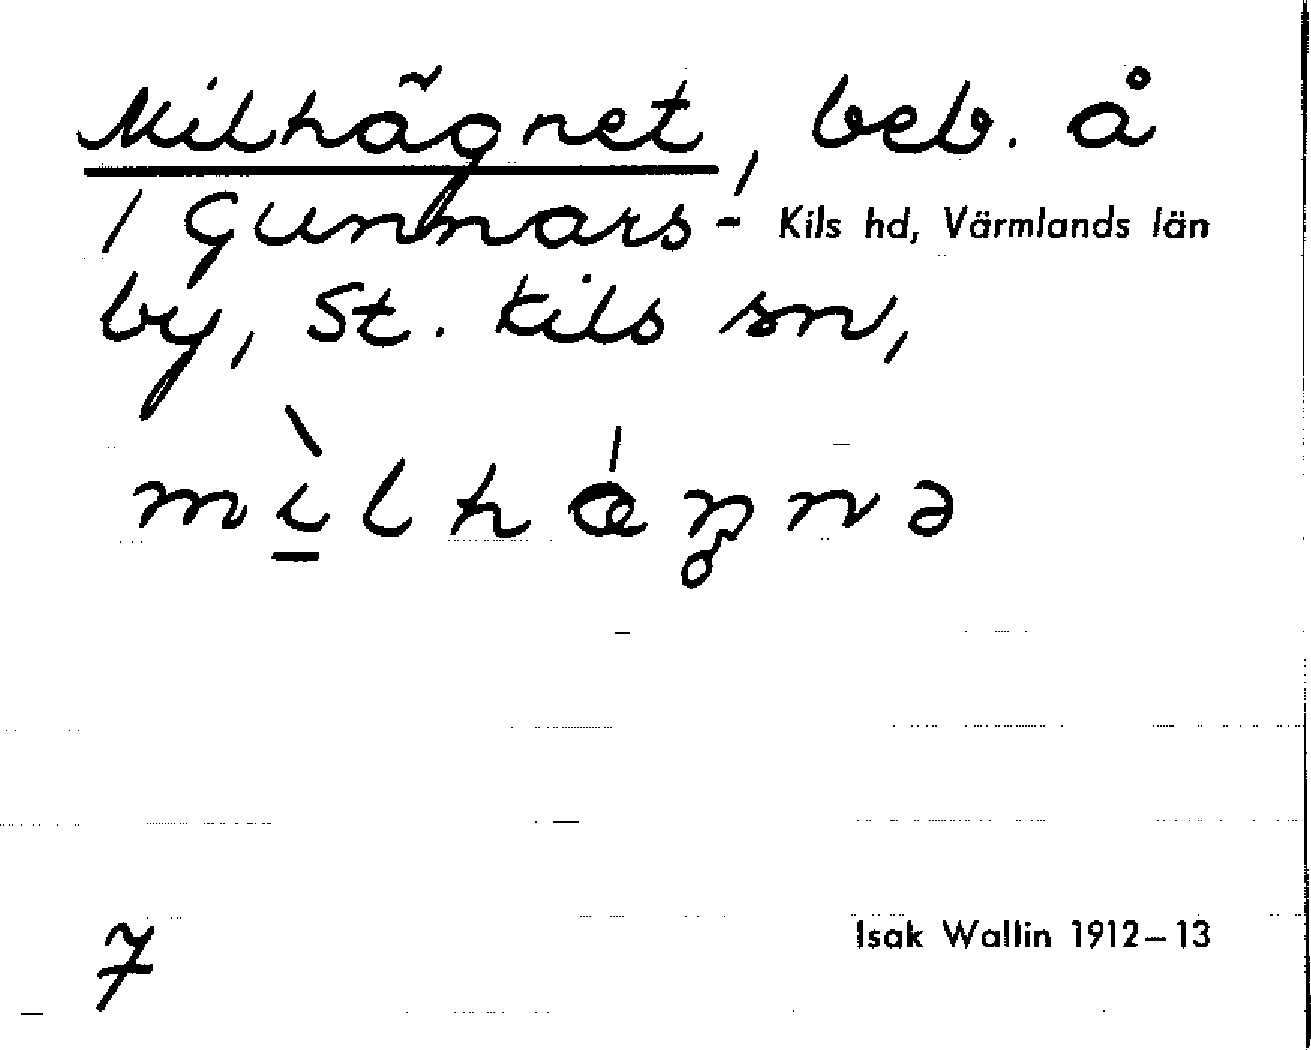 Milhägnet, beb. å
1 Gunnars- Kils hd, Värmlands län
by, St. Kils sn,
mìlhá̈ŋnə
7
Isak Wallin 1912–13